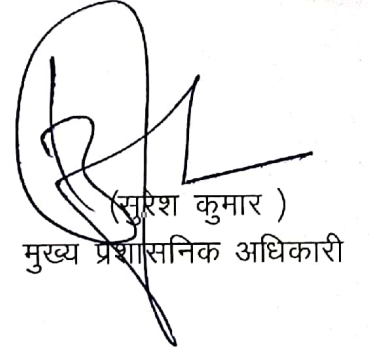 (सुरेश कुमार )
मुख्य प्रशासनिक अधिकारी